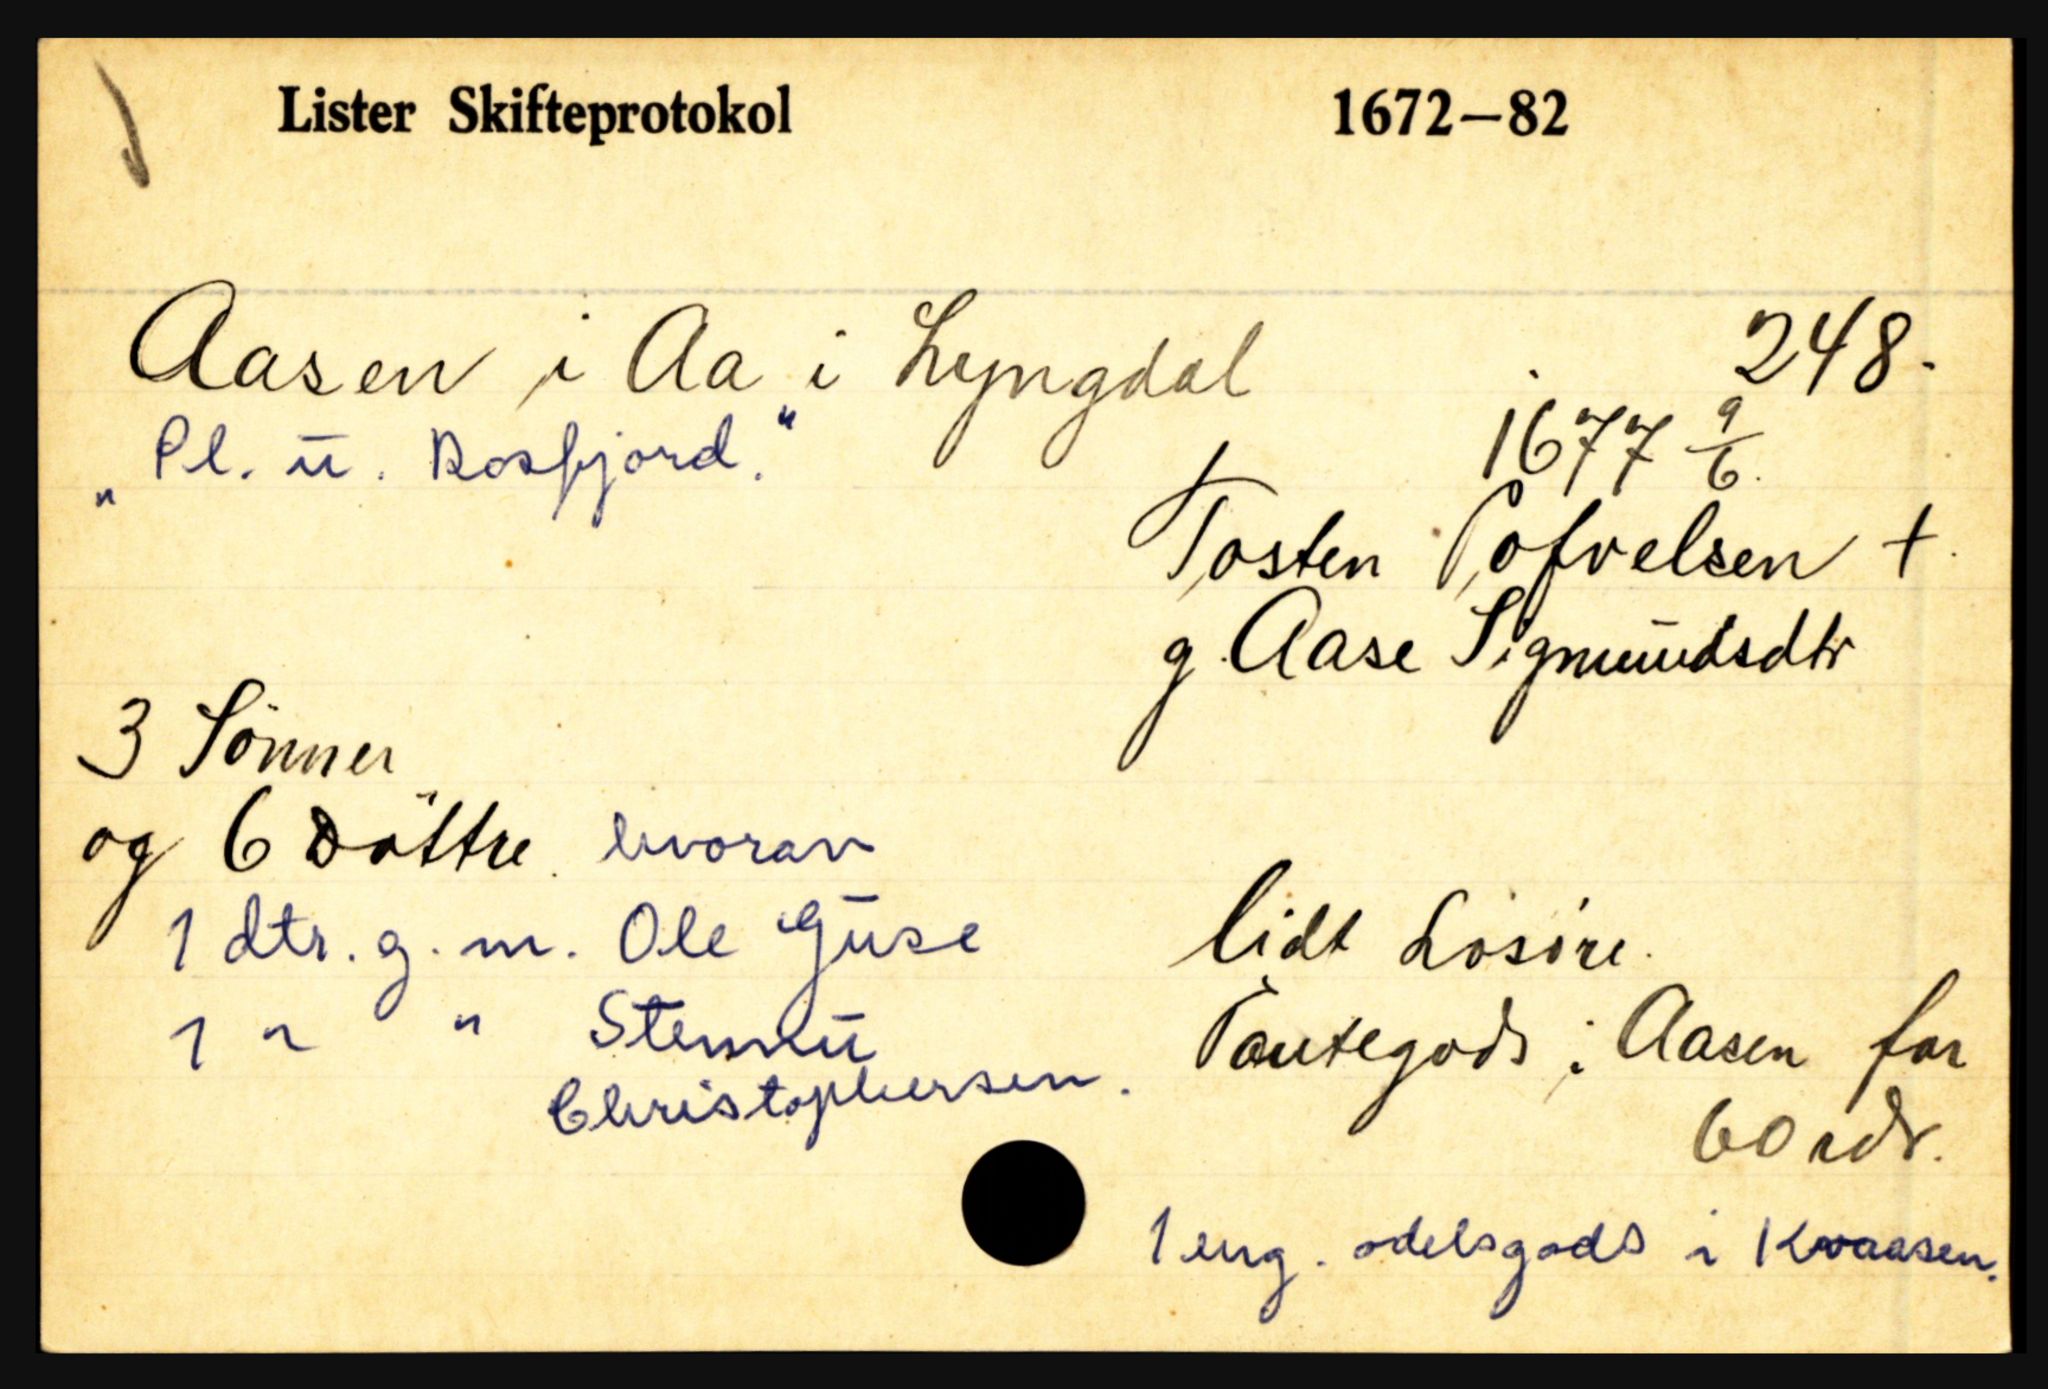 Lister Skifteprotokol 1672–82
Aasen i Aa i Lyngdal 248.
"Pl. u. Rosfjord." 1677 9/6.
Tosten Pofvelsen +
g. Aase Sigmundsdtr
3 Sönner
og 6 Döttre hvorav
1 dtr. g. m. Ole Guse
lidt Losöre.
1 " " Stennu
Christophersen.
Pantegods i Aasen for
60 rdr.
1 eng. odelsgods i Kvaasen.